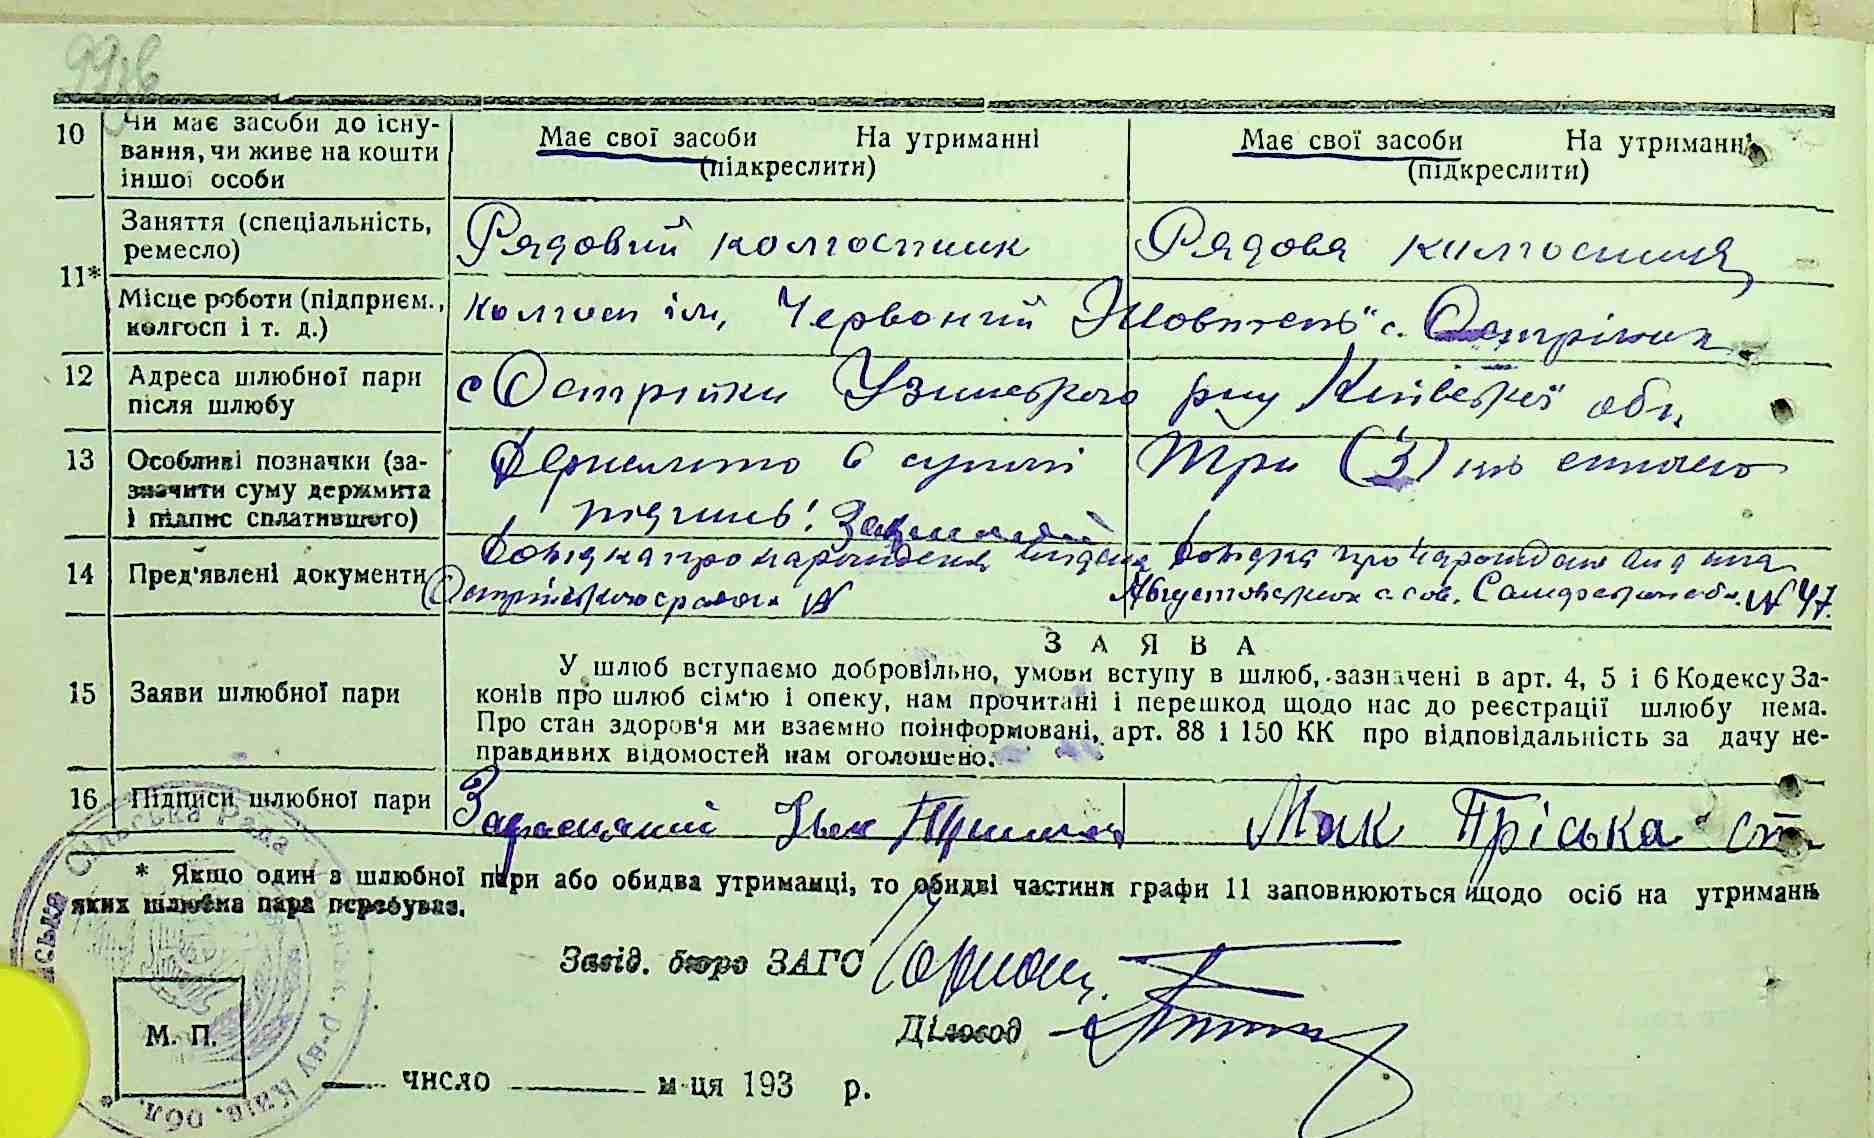 99зв
10 Чи має засоби до існу-
вання, чи живе на кошти
іншої особи
Має свої засоби На утриманні
(підкреслити)
Має свої засоби На утриманні
(підкреслити)
11* Заняття (спеціальність,
ремесло)
Рядовий колгоспник
Рядова колгоспниця
Місце роботи (підприєм.,
колгосп і т. д.)
колгосп ім, Червоний Жовтень" с. Острійки
12 Адреса шлюбної пари
після шлюбу
с Острійки Узинського р-ну Київської обл.
13 Особливі позначки (за-
значити суму держмита
і підпис сплатившого)
Держмито в сумі Три (3)
підпись!
14 Пред'явлені документи
Довідка про народження видана
Острійською с радою №
Довідка про народження видана
сов. №47.
15 Заяви шлюбної пари
ЗАЯВА
У шлюб вступаємо добровільно, умови вступу в шлюб, зазначені в арт. 4, 5 і 6 Кодексу За-
конів про шлюб сім'ю і опеку, нам прочитані і перешкод щодо нас до реєстрації шлюбу нема.
Про стан здоров'я ми взаємно поінформовані, арт. 88 і 150 КК про відповідальність за дачу не-
правдивих відомостей нам оголошено.
16 Підписи шлюбної пари
Іван
Мак Пріська ст
* Якщо один з шлюбної пари або обидва утриманці, то обидві частини графи 11 заповнюються щодо осіб на утриманні
яких шлюбна пара перебуває.
Завід. бюро ЗАГС
Діловод
М. П.
число м-ця 193 р.
Сільська Рада р-ну Київ. обл. *